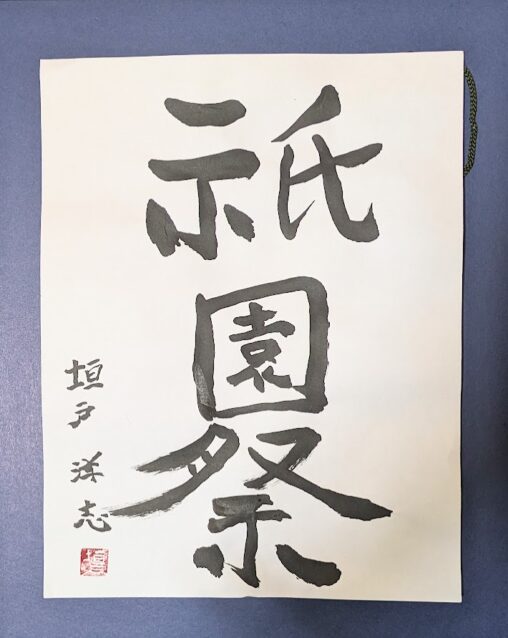 祇園祭
垣戸 洋志